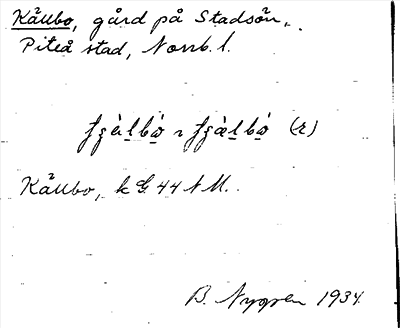 Källbo, gård på Stadsön,
Piteå stad, Norrb. l.
(r)
Källbo, k G. 44 N M.
B. Nygren 1934.